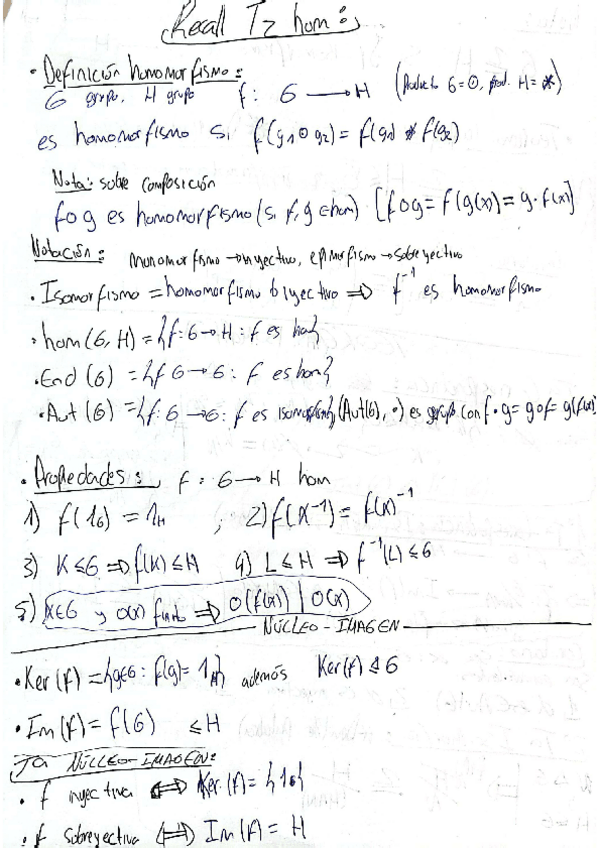 Recall T2 hom:
• Definición homomorfismo:
G grupo, H grupo f: G ⟶ H (Producto G=⊙, prod. H=*)
es homomorfismo si f(g₁⊙g₂)=f(g₁)*f(g₂)
Nota: sobre composición
fog es homomorfismo (si f,g ∈ hom) [fog=f(g(x))=g·f(x)]
Notación: monomorfismo → inyectivo, epimorfismo → sobreyectivo
• Isomorfismo = homomorfismo biyectivo ⇒ f⁻¹ es homomorfismo
• hom(G,H)={f:G→H: f es hom}
• End(G)={f G→G: f es hom}
• Aut(G)={f:G→G: f es isomorfismo} (Aut(G),·) es grupo con f·g=gof=g(f(x))
• Propiedades: f: G→H hom
1) f(1G)=1H ; 2) f(x⁻¹)=f(x)⁻¹
3) K≤G ⇒ f(K)≤H 4) L≤H ⇒ f⁻¹(L)≤G
5) x∈G y O(x) finito ⇒ O(f(x)) | O(x)
NÚCLEO-IMAGEN
• Ker(f)={g∈G: f(g)=1H} además Ker(f)⊴G
• Im(f)=f(G) ≤H
Ta NÚCLEO-IMAGEN:
• f inyectiva ⇔ Ker(f)={1G}
• f sobreyectiva ⇔ Im(f)=H